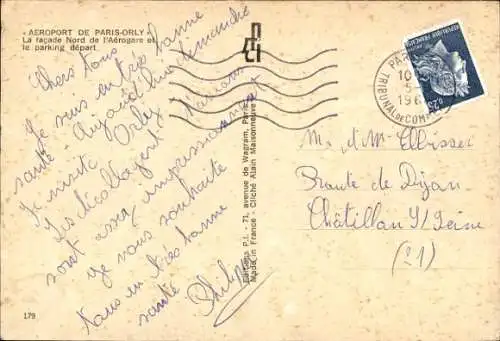 "AEROPORT DE PARIS-ORLY"
La façade Nord de l'Aérogare et
le parking départ.
Chers tous
Je suis en très bonne
santé. Aujourd'hui dimanche
Je visite Orly
Les décollages
sont assez impressionnants
je vous souhaite
tous en très bonne
santé
Philippe
179
Editions P.I. - 71, avenue de Wagram, Paris
Made in France - Cliché Alain Maisonneuve
REPUBLIQUE FRANÇAISE
0,25
PARIS
10
5
196
TRIBUNAL DE COMM
M. & Mme
Route de Dijon
Châtillon S/Seine
(21)